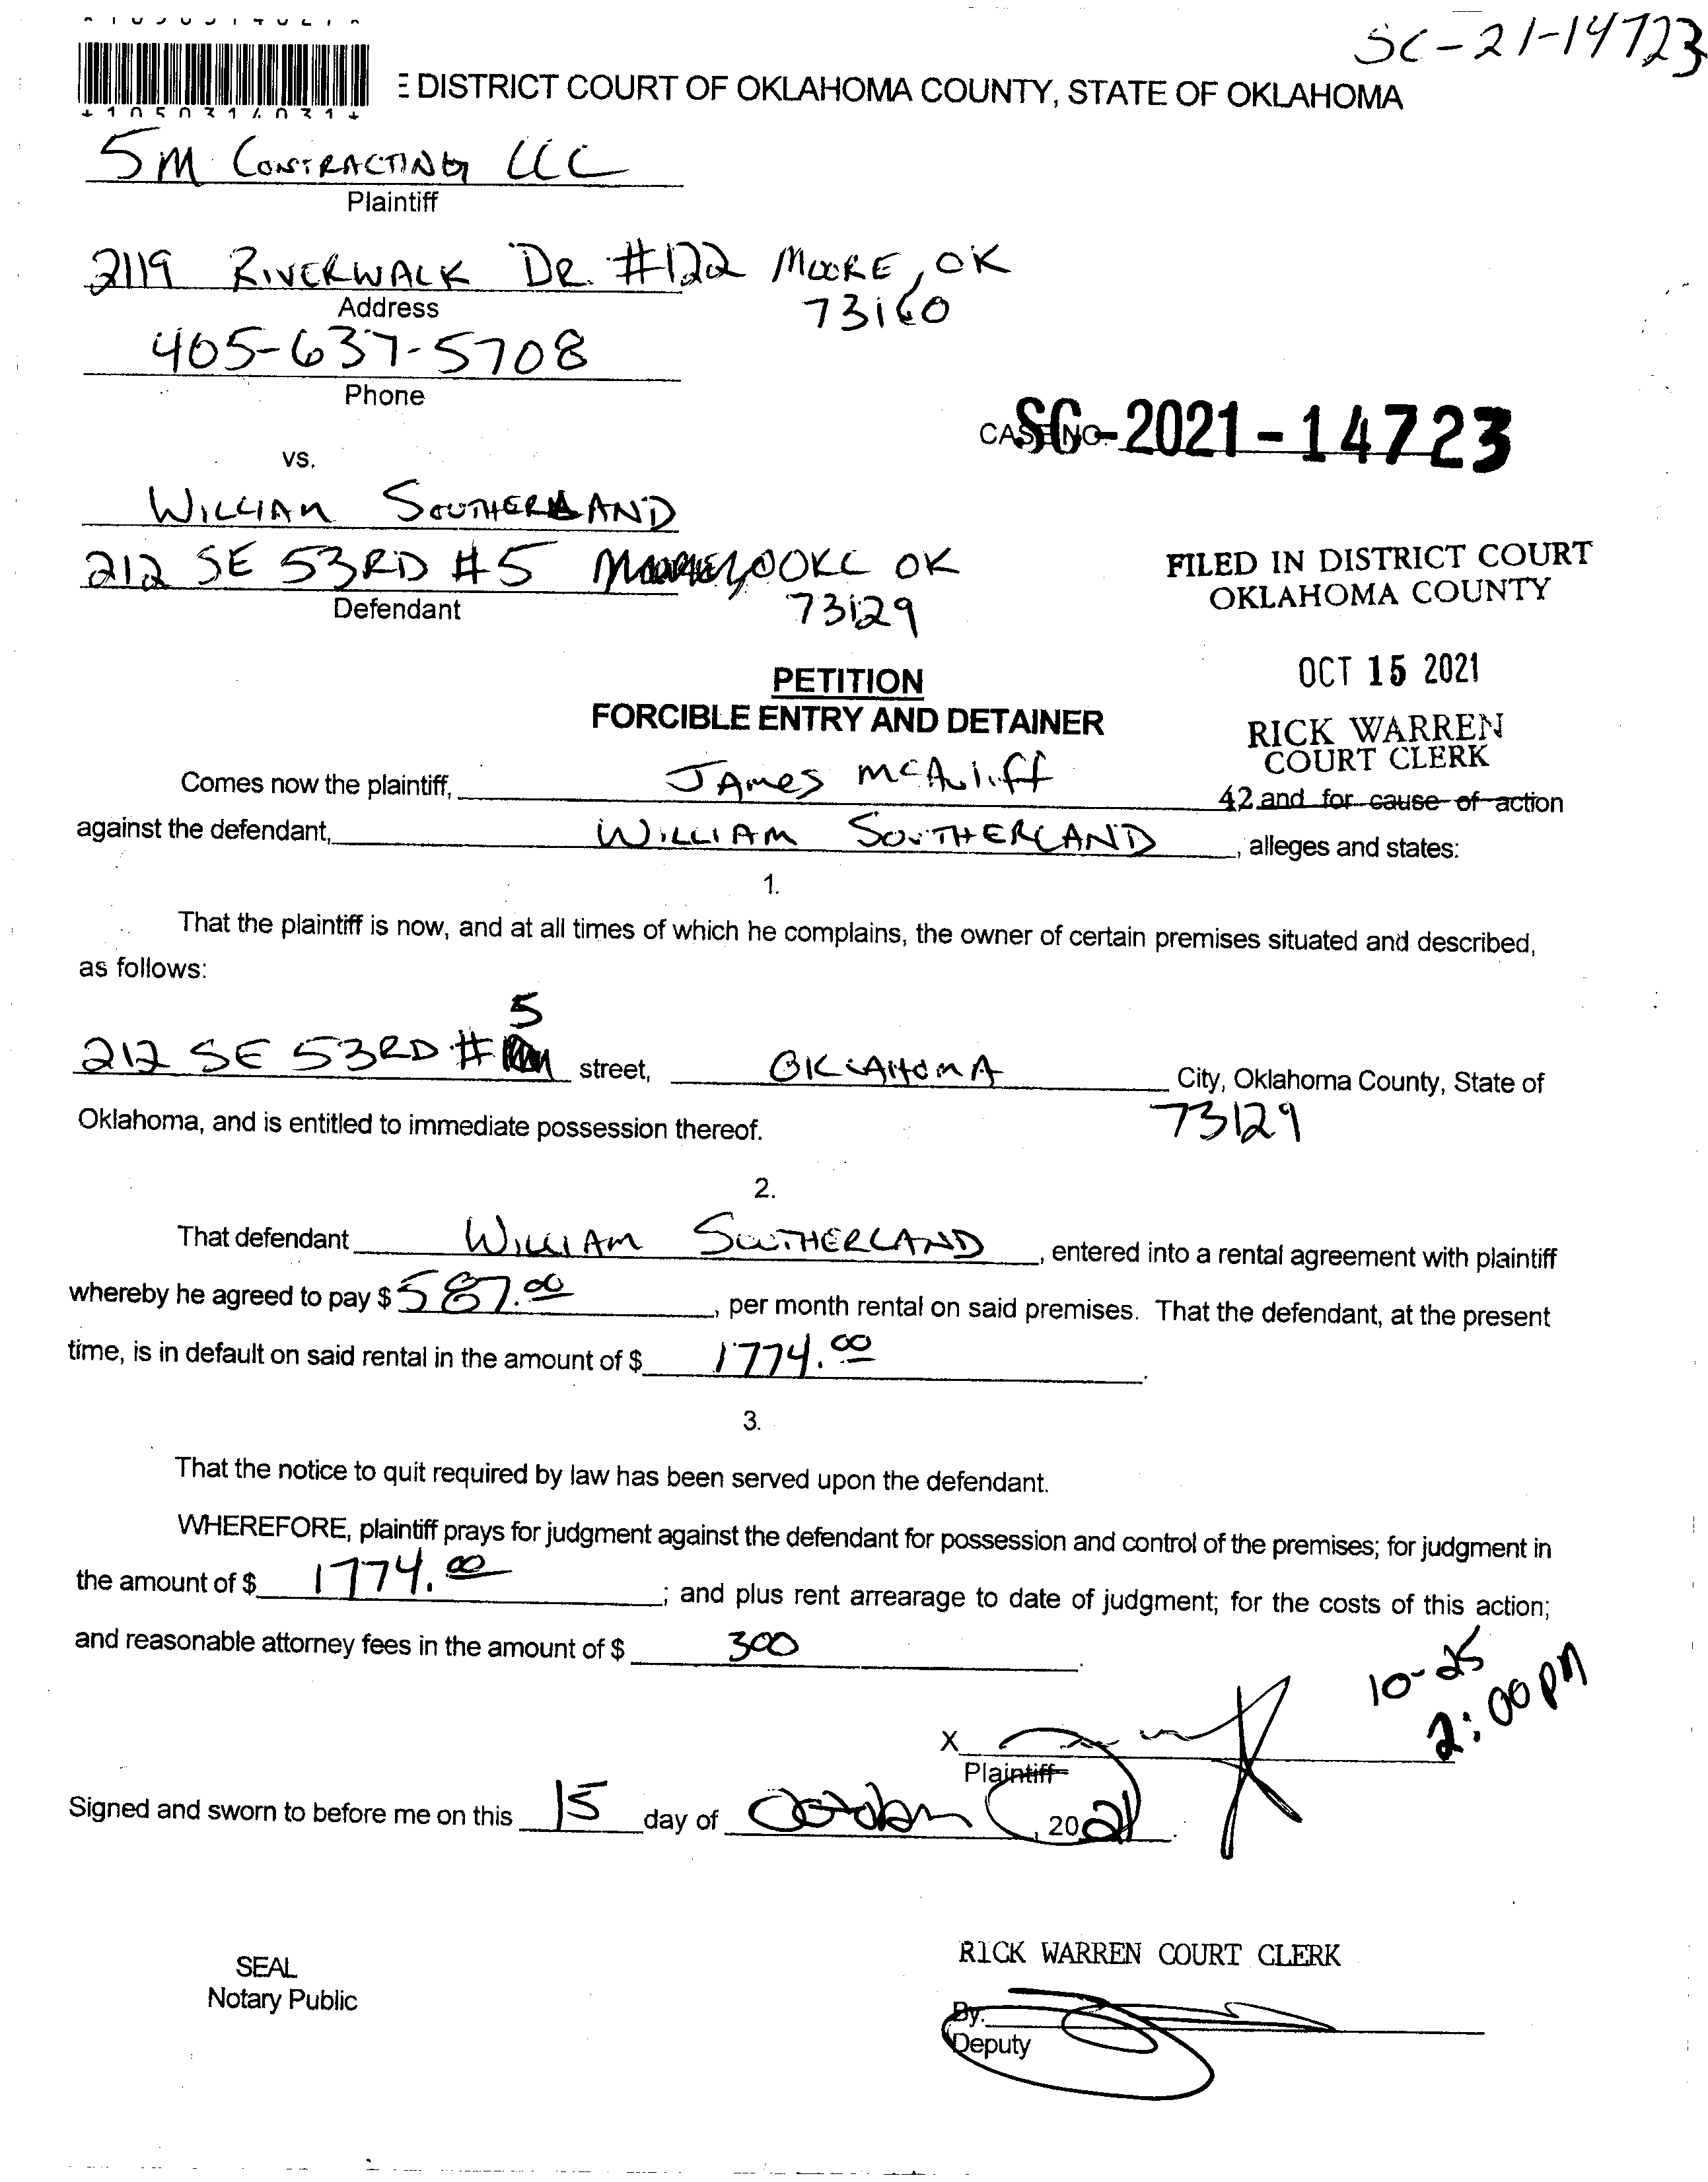 SC-21-14723
DISTRICT COURT OF OKLAHOMA COUNTY, STATE OF OKLAHOMA
5M CONTRACTING LLC
Plaintiff
2119 RIVERWALK DR. #122 MOORE, OK
73160
Address
405-637-5708
Phone
CASE NO. SC-2021-14723
vs.
WILLIAM SOUTHERLAND
212 SE 53RD #5 OKC OK
73129
Defendant
FILED IN DISTRICT COURT
OKLAHOMA COUNTY
OCT 15 2021
RICK WARREN
COURT CLERK
PETITION
FORCIBLE ENTRY AND DETAINER
Comes now the plaintiff, JAMES McAuliff 42 and for cause of action
against the defendant, WILLIAM SOUTHERLAND, alleges and states:
1.
That the plaintiff is now, and at all times of which he complains, the owner of certain premises situated and described,
as follows:
212 SE 53RD #5 street, OKLAHOMA City, Oklahoma County, State of
Oklahoma, and is entitled to immediate possession thereof. 73129
2.
That defendant WILLIAM SOUTHERLAND, entered into a rental agreement with plaintiff
whereby he agreed to pay $587.00, per month rental on said premises. That the defendant, at the present
time, is in default on said rental in the amount of $ 1774.00.
3.
That the notice to quit required by law has been served upon the defendant.
WHEREFORE, plaintiff prays for judgment against the defendant for possession and control of the premises; for judgment in
the amount of $ 1774.00; and plus rent arrearage to date of judgment; for the costs of this action;
and reasonable attorney fees in the amount of $ 300.
10-25
2:00 PM
X
Plaintiff
Signed and sworn to before me on this 15 day of October, 2021.
SEAL
Notary Public
RICK WARREN COURT CLERK
By.
Deputy